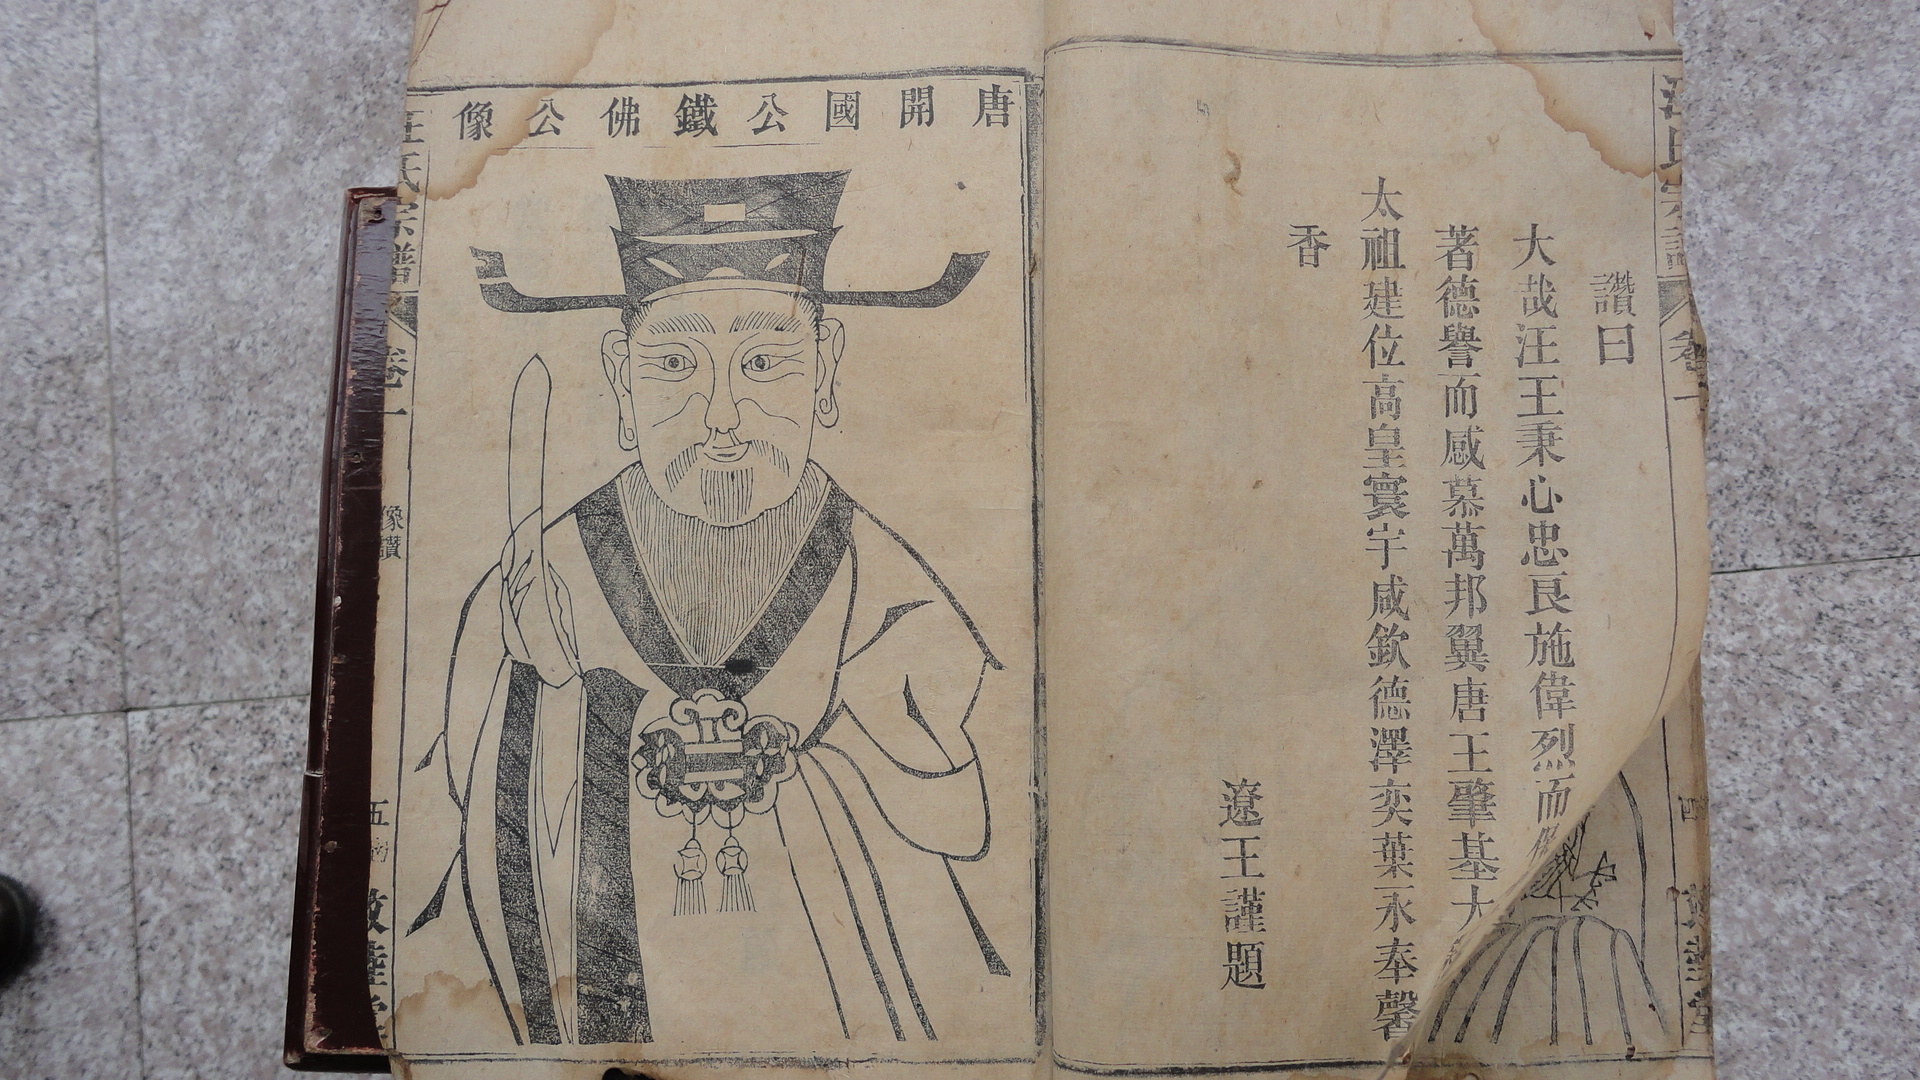 汪氏宗譜
卷一
四
讚曰
大哉汪王秉心忠良施偉烈而
著德譽而感慕萬邦翼唐王肇基大
太祖建位高皇寰宇咸欽德澤奕葉永奉馨
香
遼王謹題
唐開國公鐵佛公像
汪氏宗譜
卷一
像讚
五
敦睦堂